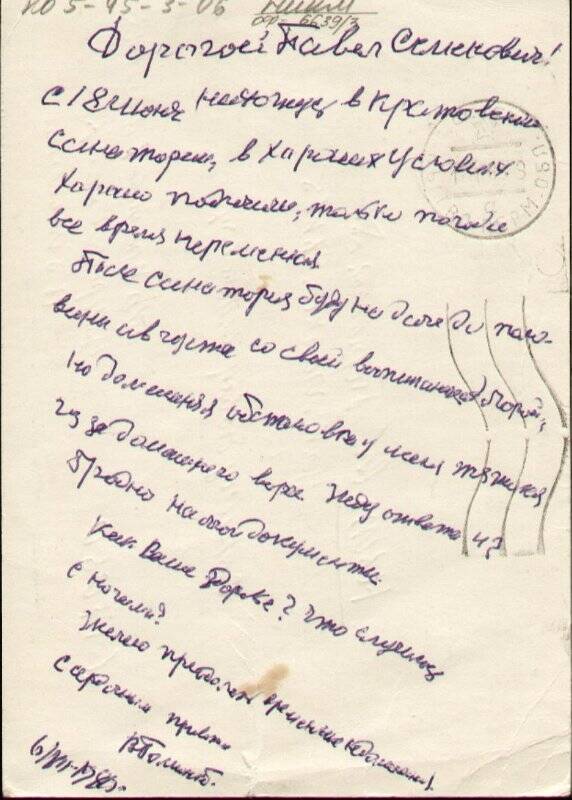 КО 5-45-3-06 НИКМ
оф-6639/2
Дорогой Павел Семенович!
С 18 июня нахожусь в Кратовском
санатории, в хороших условиях.
Хорошо подлечили, только погода
все время переменная
После санатория буду на даче до поло-
вины августа со своей воспитанницей
Но домашняя обстановка у меня тяжелая
из за домашнего вора. Жду ответа из
Гродно на мои документы.
Как Ваше здоровье? Что случилось
с ногами?
Желаю преодолеть временные недомогания.
С сердечным приветом
6/VII-1983г.